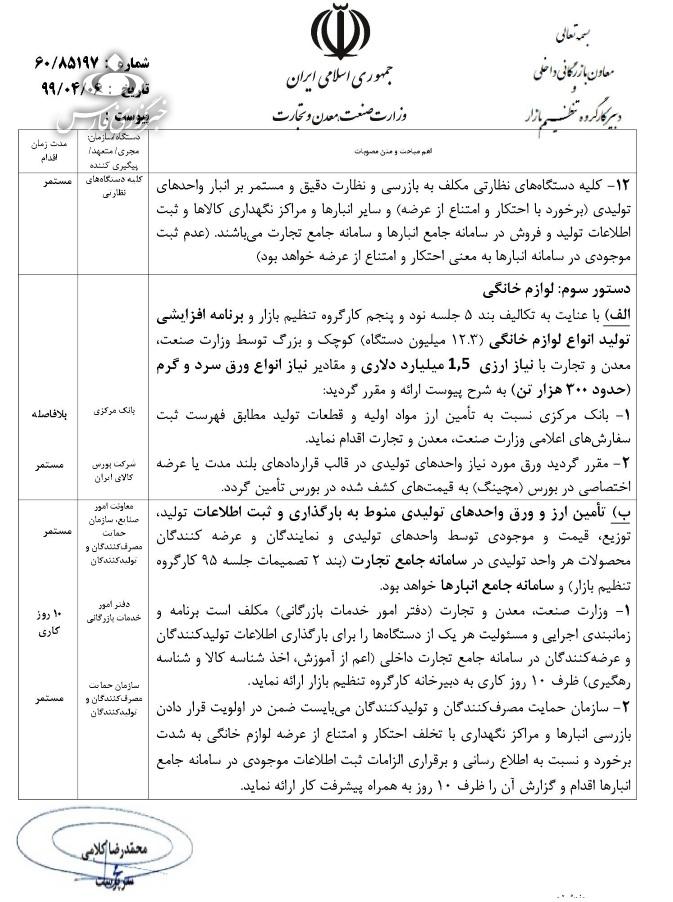 بسمه تعالی
معاون بازرگانی داخلی
و
دبیر کارگروه تنظیم بازار
جمهوری اسلامی ایران
وزارت صنعت، معدن و تجارت
شماره: ۶۰/۸۵۱۹۷
تاریخ: ۹۹/۰۴/۰۶
پیوست:
خبرگزاری فارس
اهم مباحث و متن مصوبات
دستگاه/سازمان:
مجری/ متعهد/
پیگیری کننده
مدت زمان
اقدام
۱۲- کلیه دستگاه‌های نظارتی مکلف به بازرسی و نظارت دقیق و مستمر بر انبار واحدهای
تولیدی (برخورد با احتکار و امتناع از عرضه) و سایر انبارها و مراکز نگهداری کالاها و ثبت
اطلاعات تولید و فروش در سامانه جامع انبارها و سامانه جامع تجارت می‌باشند. (عدم ثبت
موجودی در سامانه انبارها به معنی احتکار و امتناع از عرضه خواهد بود)
کلیه دستگاه‌های
نظارتی
مستمر
دستور سوم: لوازم خانگی
الف) با عنایت به تکالیف بند ۵ جلسه نود و پنجم کارگروه تنظیم بازار و برنامه افزایشی
تولید انواع لوازم خانگی (۱۲.۳ میلیون دستگاه) کوچک و بزرگ توسط وزارت صنعت،
معدن و تجارت با نیاز ارزی 1,5 میلیارد دلاری و مقادیر نیاز انواع ورق سرد و گرم
(حدود ۳۰۰ هزار تن) به شرح پیوست ارائه و مقرر گردید:
۱- بانک مرکزی نسبت به تأمین ارز مواد اولیه و قطعات تولید مطابق فهرست ثبت
سفارش‌های اعلامی وزارت صنعت، معدن و تجارت اقدام نماید.
بانک مرکزی
بلافاصله
۲- مقرر گردید ورق مورد نیاز واحدهای تولیدی در قالب قراردادهای بلند مدت یا عرضه
اختصاصی در بورس (مچینگ) به قیمت‌های کشف شده در بورس تأمین گردد.
شرکت بورس
کالای ایران
مستمر
ب) تأمین ارز و ورق واحدهای تولیدی منوط به بارگذاری و ثبت اطلاعات تولید،
توزیع، قیمت و موجودی توسط واحدهای تولیدی و نمایندگان و عرضه کنندگان
محصولات هر واحد تولیدی در سامانه جامع تجارت (بند ۲ تصمیمات جلسه ۹۵ کارگروه
تنظیم بازار) و سامانه جامع انبارها خواهد بود.
معاونت امور
صنایع، سازمان
حمایت
مصرف‌کنندگان و
تولیدکنندگان
مستمر
۱- وزارت صنعت، معدن و تجارت (دفتر امور خدمات بازرگانی) مکلف است برنامه و
زمانبندی اجرایی و مسئولیت هر یک از دستگاه‌ها را برای بارگذاری اطلاعات تولیدکنندگان
و عرضه‌کنندگان در سامانه جامع تجارت داخلی (اعم از آموزش، اخذ شناسه کالا و شناسه
رهگیری) ظرف ۱۰ روز کاری به دبیرخانه کارگروه تنظیم بازار ارائه نماید.
دفتر امور
خدمات بازرگانی
۱۰ روز
کاری
۲- سازمان حمایت مصرف‌کنندگان و تولیدکنندگان می‌بایست ضمن در اولویت قرار دادن
بازرسی انبارها و مراکز نگهداری با تخلف احتکار و امتناع از عرضه لوازم خانگی به شدت
برخورد و نسبت به اطلاع رسانی و برقراری الزامات ثبت اطلاعات موجودی در سامانه جامع
انبارها اقدام و گزارش آن را ظرف ۱۰ روز به همراه پیشرفت کار ارائه نماید.
سازمان حمایت
مصرف‌کنندگان و
تولیدکنندگان
مستمر
محمدرضا کلامی
سرپرست